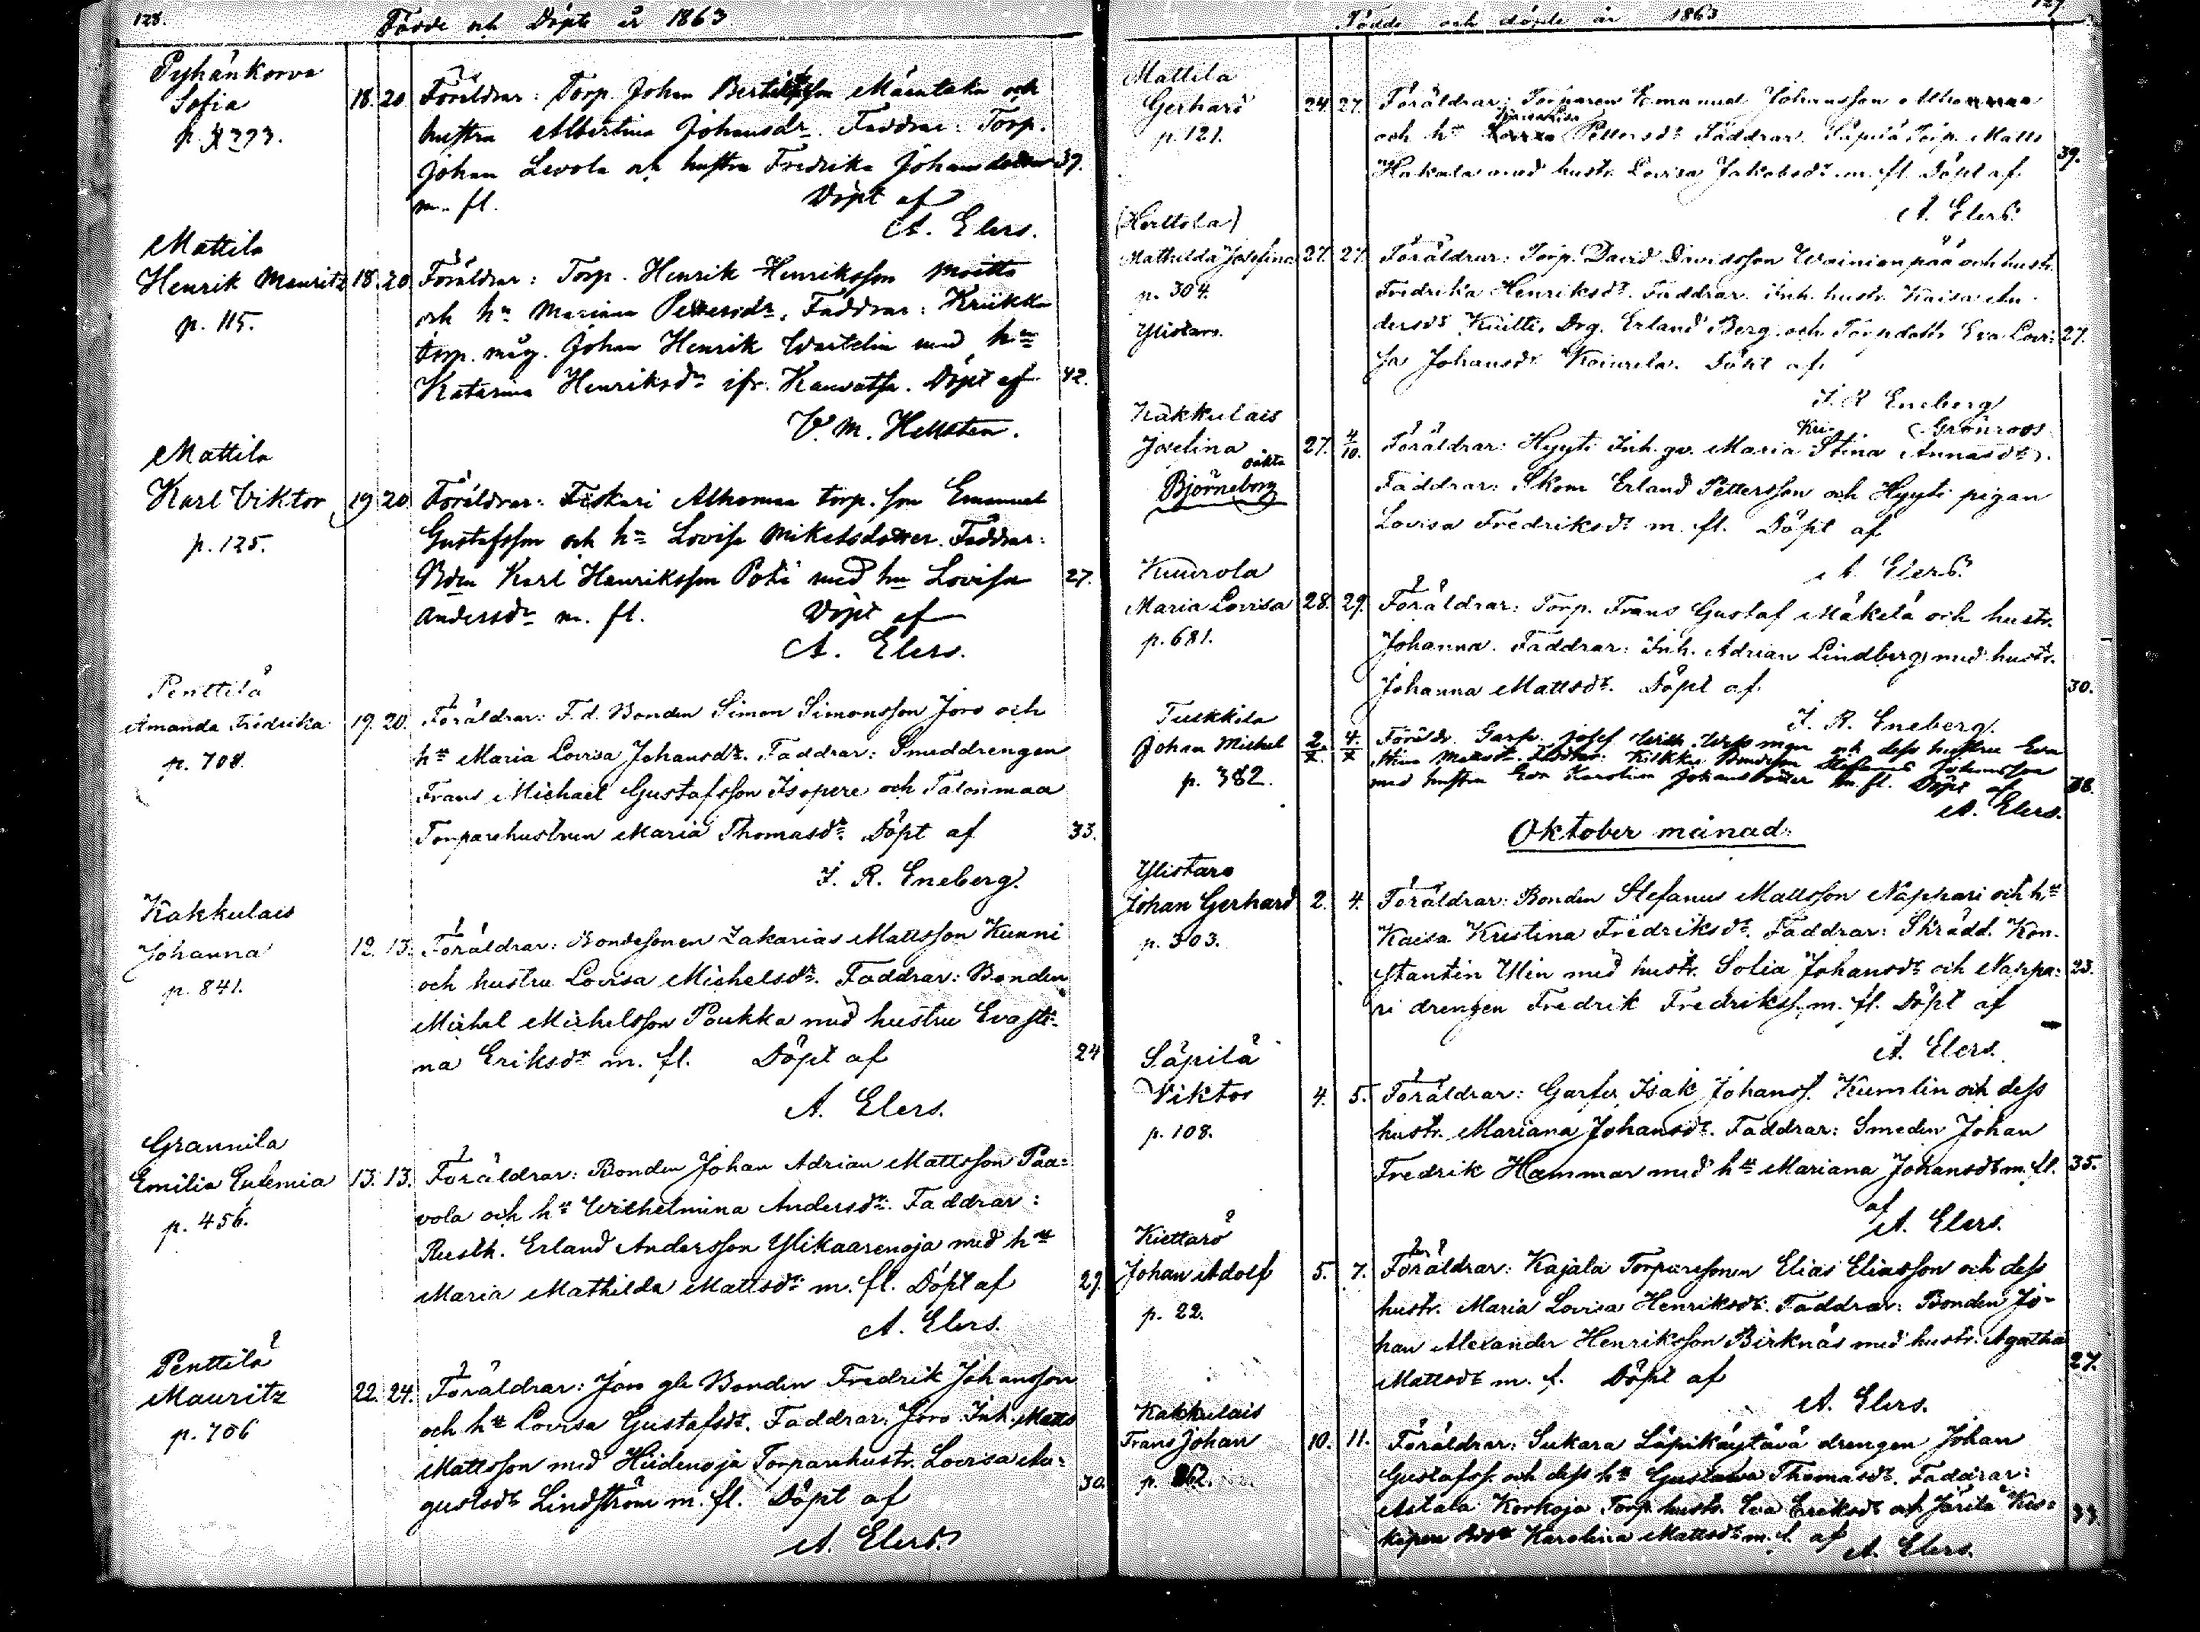 128.
Födde och Döpte år 1863
Pyhänkorva
Sofia
p. 393.
18. 20. Föräldrar: Torp. Johan Bertilsson Mäentaka och
hustru Albertina Johansdr. Faddrar: Torp.
Johan Levola och hustru Fredrika Johansdotter 37.
m. fl. Döpt af
A. Elers.
Mattila
Henrik Mauritz 18. 20 Föräldrar: Torp. Henrik Henriksson Moitto
p. 115.
och hu Mariana Pettersdr. Faddrar: Kriikku
torp. måg. Johan Henrik Waitelin med hu
Katarina Henriksdr ifr. Kauvatsa. Döpt af 42.
V. M. Hellsten.
Mattila
Karl Viktor 19 20 Föräldrar: Fiskari Alhonmaa torp. son Emanuel
p. 125.
Gustafsson och hu Lovisa Mikelsdotter. Faddrar:
Bden Karl Henriksson Poti med hu Lovisa 27.
Andersdr m. fl. Döpt af
A. Elers.
Penttilä
Amanda Fredrika 19. 20. Föräldrar: F.d. Bonden Simon Simonsson Joro och
p. 708.
hu Maria Lovisa Johansdr. Faddrar: Smeddrengen
Frans Michael Gustafsson Isopere och Talonmaa
Torparehustrun Maria Thomasdr. Döpt af 33.
J. R. Eneberg.
Kakkulais
Johanna 12. 13. Föräldrar: Bondesonen Zakarias Mattsson Kunni
p. 841.
och hustru Lovisa Michelsdr. Faddrar: Bonden
Michel Michelsson Paukka med hustru Eva Sti-
na Eriksdr m. fl. Döpt af 24
A. Elers.
Grannila
Emilia Eufemia 13. 13. Föräldrar: Bonden Johan Adrian Mattsson Paa-
p. 456.
vola och hu Wilhelmina Andersdr. Faddrar:
Rusth. Erland Andersson Ylikaarenoja med hu
Maria Mathilda Mattsdr m. fl. Döpt af 29.
A. Elers.
Penttilä
Mauritz 22. 24. Föräldrar: Joro gle Bonden Fredrik Johansson
p. 706
och hu Lovisa Gustafsdr. Faddrar: Joro Inh. Matts
Mattsson med Hiidenoja Torparehustr. Lovisa Au-
gustsdr Lindström m. fl. Döpt af 30.
A. Elers.
129.
Födde och döpte år 1863
Mattila
Gerhard 24. 27. Föräldrar: Torparen Emanuel Johansson Alhonmaa
p. 121.
och hu Pettersdr Faddrar. Säpilä Torp. Matts
Hakala med hustr. Lovisa Jakobsdr. m. fl. Döpt af 39.
A. Elers.
(Herttola)
Mathilda Josefina 27. 27. Föräldrar: Torp. David Davidsson Wainionpää och hustr.
p. 304.
Fredrika Henriksdr. Faddrar. Inh. hustr. Kaisa An-
Ylistaro.
dersdr Kuitti, Drg. Erland Berg och Torp.dottr Eva Lovi- 27.
sa Johansdr Koiurela. Döpt af
J. R. Eneberg
Kakkulais
Joselina 27. 4/10. Föräldrar: Hyyti Inh. qv. Maria Stina Annasdr.
Grönroos
oäkta
Björneborg
Faddrar: Skom Erland Pettersson och Hyyti pigan
Lovisa Fredriksdr m. fl. Döpt af
A. Elers.
Kuurola
Maria Lovisa 28. 29. Föräldrar: Torp. Frans Gustaf Mäkelä och hustr.
p. 681.
Johanna. Faddrar: Inh. Adrian Lindberg med hustr.
Johanna Mattsdr. Döpt af 30.
J. R. Eneberg.
Tuckkila
Johan Michel 2/X. 4/X Föräldr. Garf. Josef Wilh. Wessman och dess hustru Eva
p. 382.
Stina Mattsdr. Faddrar: Kilkku Bondeson Stefanus Johansson
med hustru Eva Karolina Johansdotter m. fl. Döpt af 38.
A. Elers.
Oktober månad.
Ylistaro
Johan Gerhard 2. 4. Föräldrar: Bonden Stefanus Mattsson Nappari och hu
p. 303.
Kaisa Kristina Fredriksdr. Faddrar: Skrädd. Kon-
stantin Ulin med hustr. Sofia Johansdr och Nappa- 23.
ri drengen Fredrik Fredrikss. m. fl. Döpt af
A. Elers.
Säpilä
Viktor 4. 5. Föräldrar: Garfv. Isak Johanss. Kumlin och dess
p. 108.
hustr. Mariana Johansdr. Faddrar: Smeden Johan
Fredrik Hammar med hu Mariana Johansdr m. fl. 35.
af
A. Elers.
Kiettarö
Johan Adolf 5. 7. Föräldrar: Kajala Torparesonen Elias Eliasson och dess
p. 22.
hustr. Maria Lovisa Henriksdr. Faddrar: Bonden Jo-
han Alexander Henriksson Birknäs med hustr. Agatha
Mattsdr m. f. Döpt af 27.
A. Elers.
Kakkulais
Frans Johan 10. 11. Föräldrar: Sukara Läpikäytävä drengen Johan
p. 862.
Gustafss. och dess hu Gustava Thomasdr. Faddrar:
Aitala Korkoja Torp.hustr. Eva Eriksdr och Järilä Kes-
kipere Karolina Mattsdr m. f. af 33.
A. Elers.